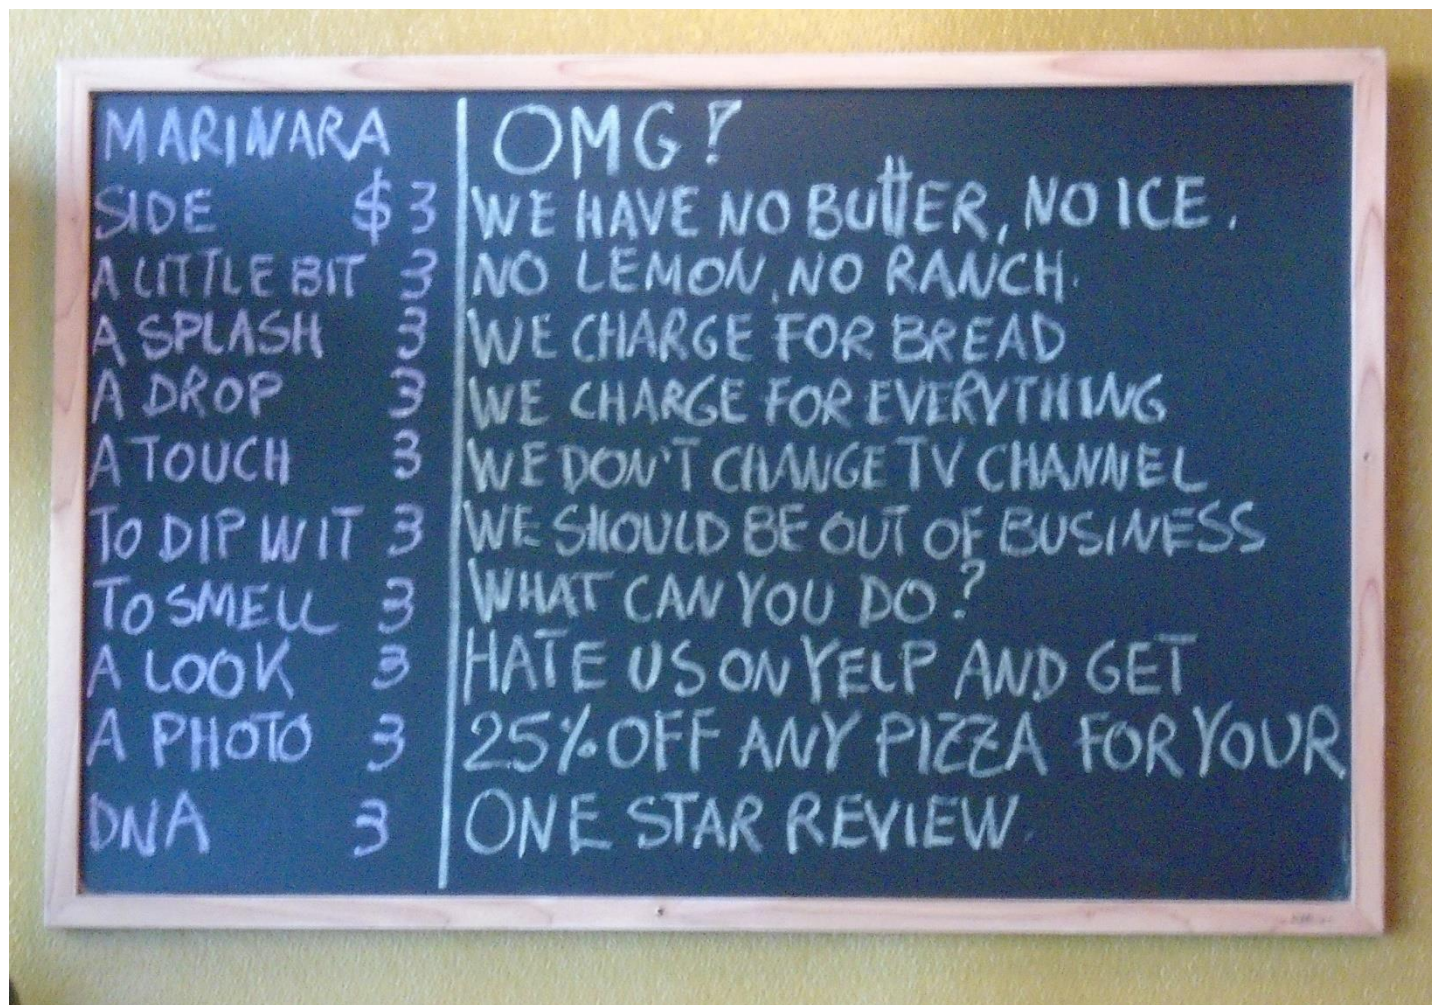 MARINARA
SIDE $3
A LITTLE BIT 3
A SPLASH 3
A DROP 3
A TOUCH 3
TO DIP WIT 3
TO SMELL 3
A LOOK 3
A PHOTO 3
DNA 3
OMG!
WE HAVE NO BUTTER, NO ICE.
NO LEMON, NO RANCH.
WE CHARGE FOR BREAD
WE CHARGE FOR EVERYTHING
WE DON'T CHANGE TV CHANNEL
WE SHOULD BE OUT OF BUSINESS
WHAT CAN YOU DO?
HATE US ON YELP AND GET
25% OFF ANY PIZZA FOR YOUR
ONE STAR REVIEW.